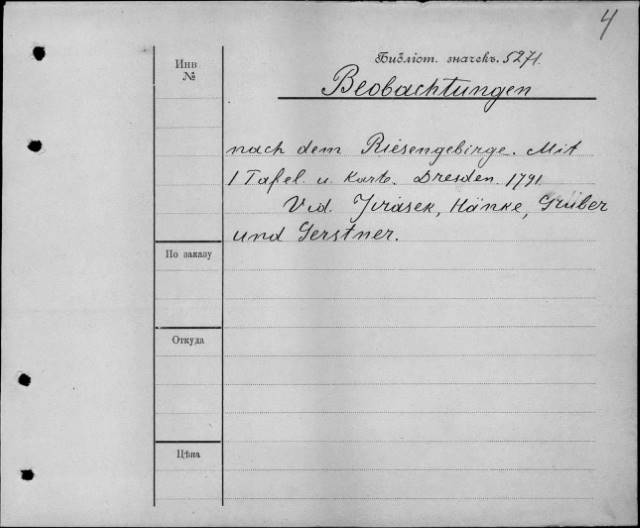 4
Библіот. значекъ. 5271.
Инв
№
Beobachtungen
nach dem Riesengebirge. Mit
1 Tafel. u. Karte. Dresden. 1791
Vid. Jirasek, Hänke, Gruber
und Gerstner.
По заказу
Откуда
Цѣна